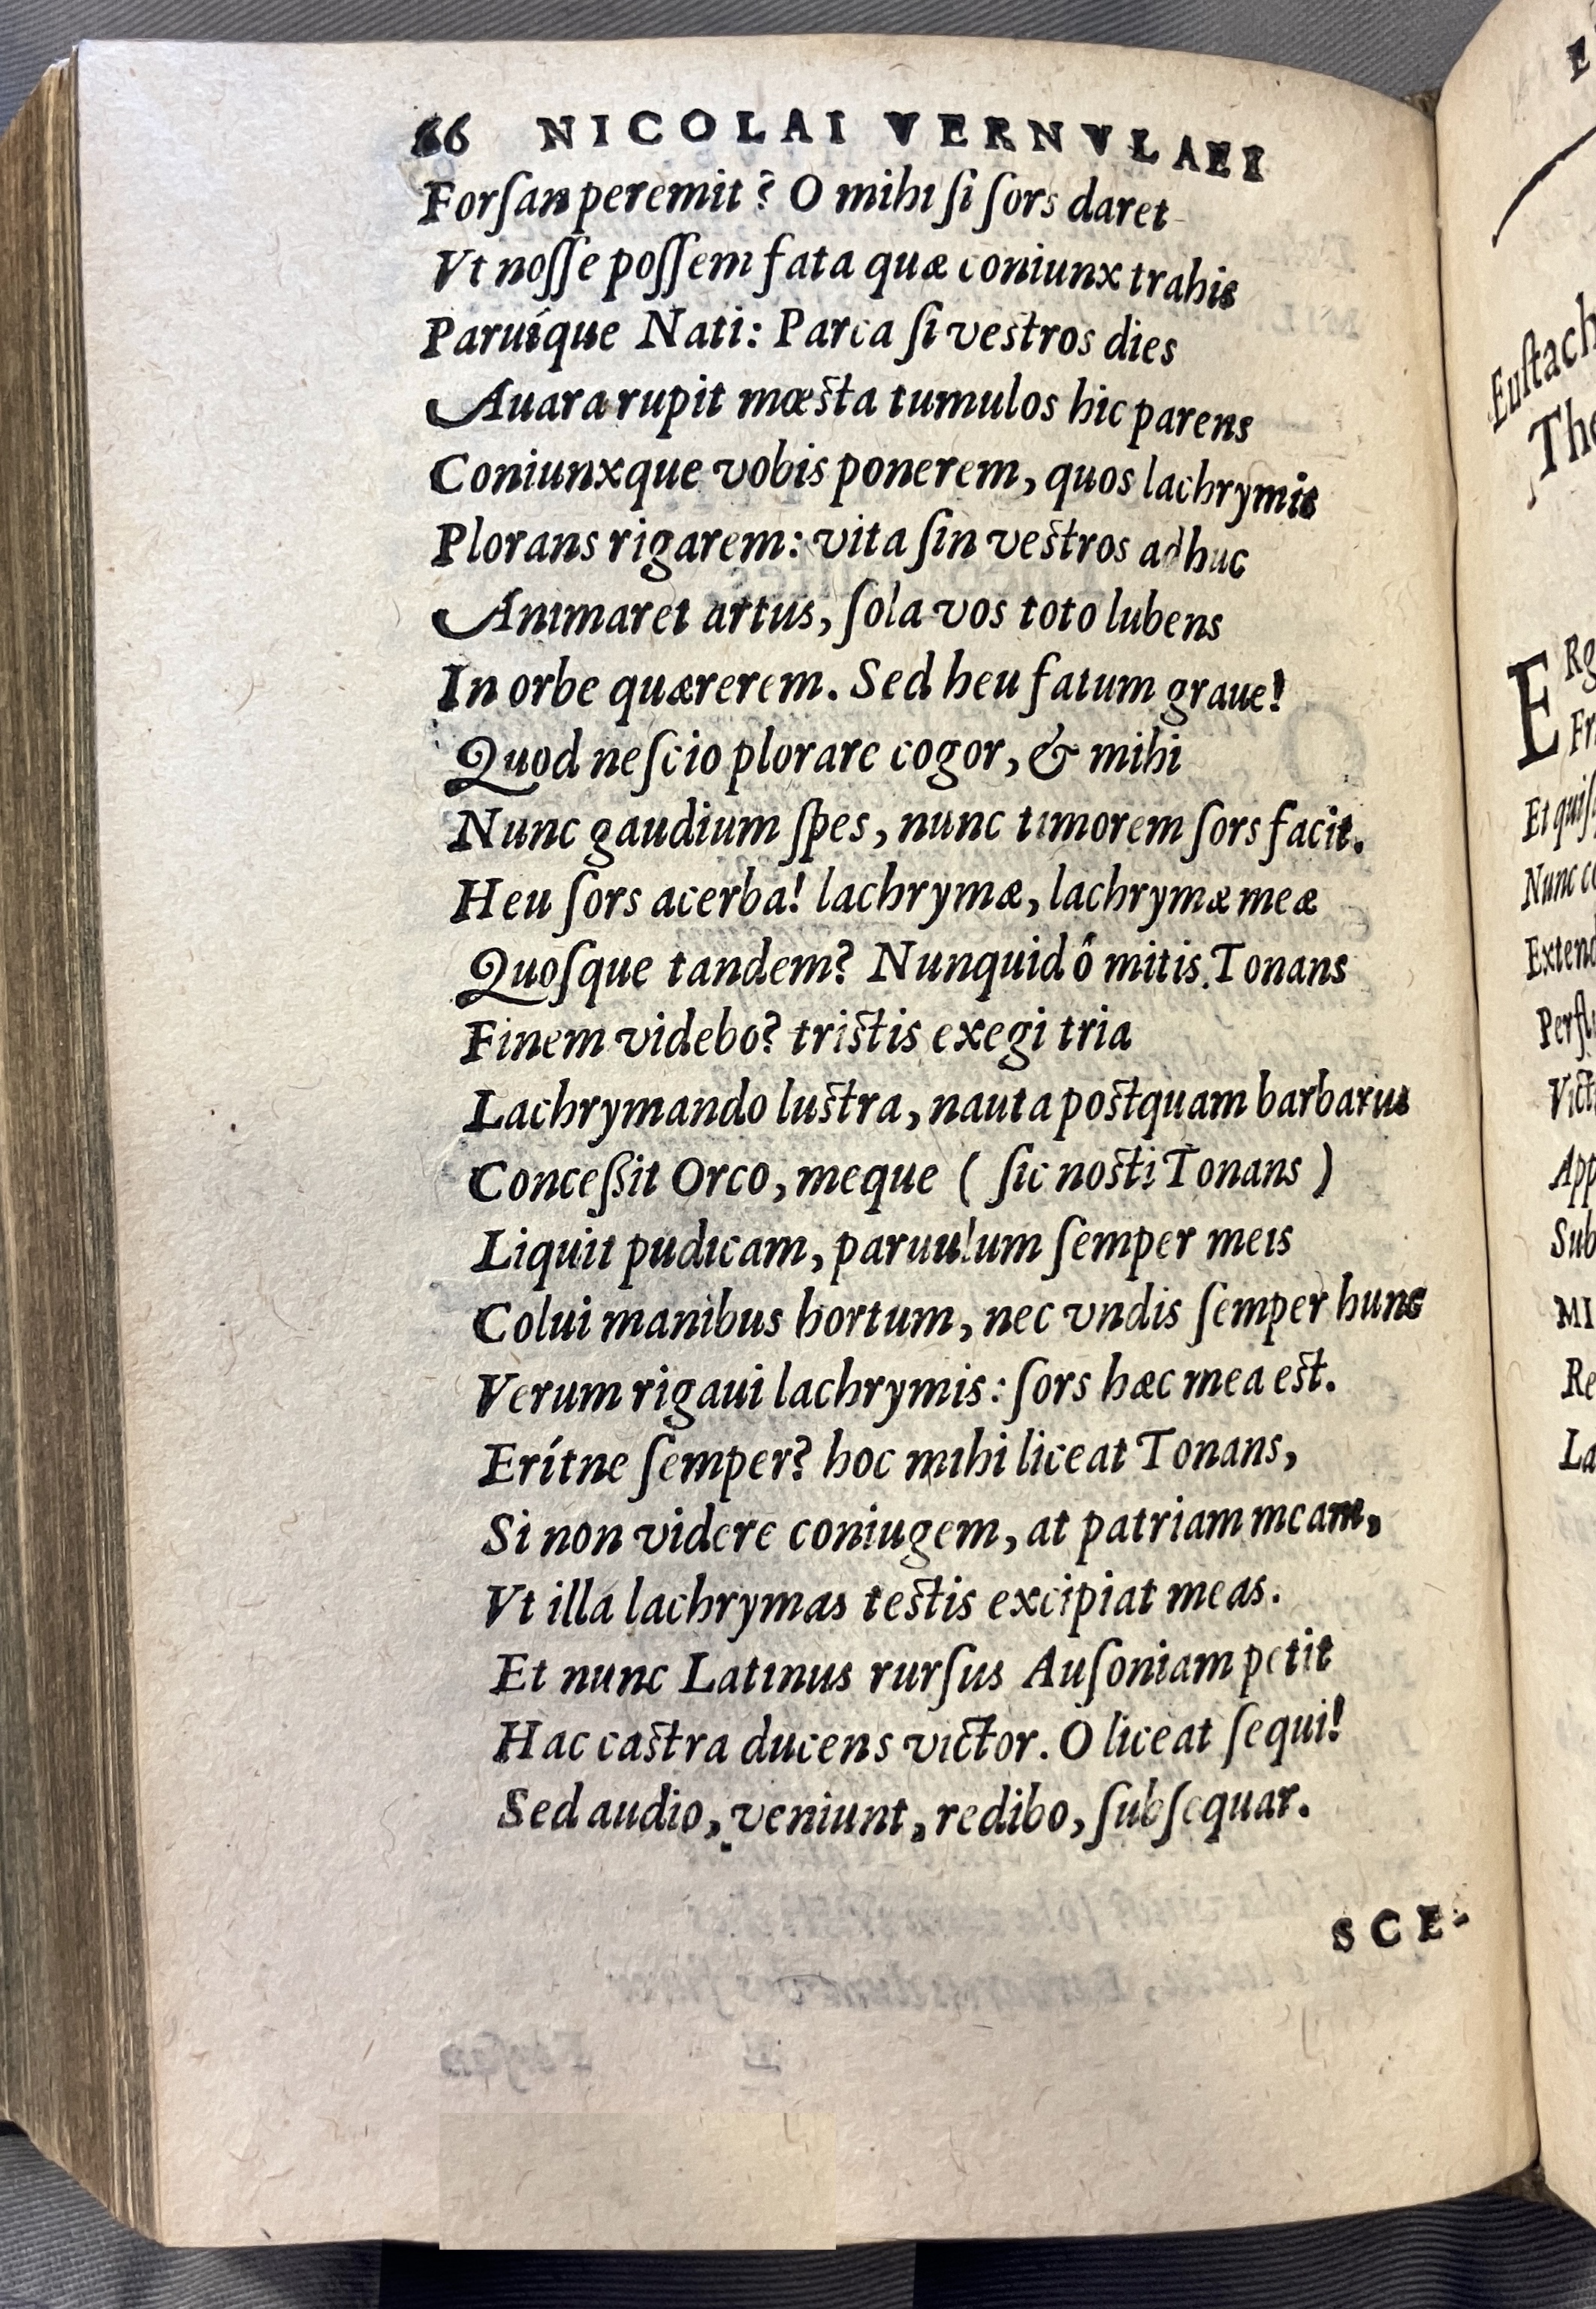 66 NICOLAI VERNVLAEI
Forſan peremit? O mihi ſi ſors daret
Vt noſſe poſſem fata quæ coniunx trahis
Paruíque Nati: Parca ſi vestros dies
Auara rupit mœsta tumulos hic parens
Coniunxque vobis ponerem, quos lachrymis
Plorans rigarem: vita ſin vestros adhuc
Animaret artus, ſola vos toto lubens
In orbe quærerem. Sed heu fatum graue!
Quod neſcio plorare cogor, & mihi
Nunc gaudium ſpes, nunc timorem ſors facit.
Heu ſors acerba! lachrymæ, lachrymæ meæ
Quoſque tandem? Nunquid ô mitis Tonans
Finem videbo? tristis exegi tria
Lachrymando lustra, nauta postquam barbarus
Conceßit Orco, meque ( ſic nosti Tonans )
Liquit pudicam, paruulum ſemper meis
Colui manibus hortum, nec vndis ſemper hunc
Verum rigaui lachrymis: ſors hæc mea est.
Erítne ſemper? hoc mihi liceat Tonans,
Si non videre coniugem, at patriam meam,
Vt illa lachrymas testis excipiat meas.
Et nunc Latinus rurſus Auſoniam petit
Hac castra ducens victor. O liceat ſequi!
Sed audio, veniunt, redibo, ſubſequar.
SCE-
Euſtach
The
E
Rg
Fr
Et quiſ
Nunc co
Extend
Perflu
Vict
App
Sub
MI
Re
La